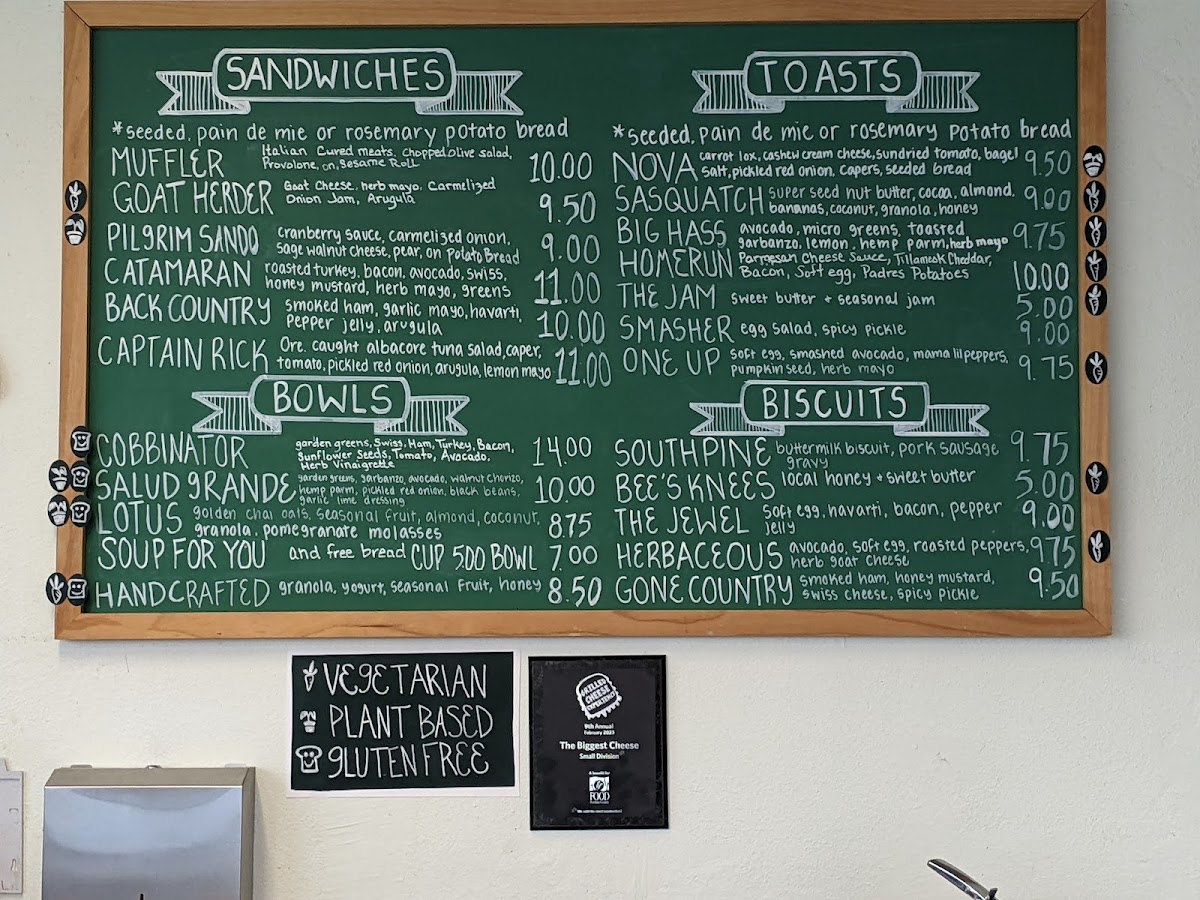 SANDWICHES
*seeded, pain de mie or rosemary potato bread
MUFFLER Italian Cured meats, Chopped olive salad, 10.00
Provolone, on, Sesame Roll
GOAT HERDER Goat Cheese, herb mayo, Carmelized 9.50
Onion Jam, Arugula
PILGRIM SANDO cranberry sauce, carmelized onion, 9.00
sage walnut cheese, pear, on Potato Bread
CATAMARAN roasted turkey, bacon, avocado, swiss, 11.00
honey mustard, herb mayo, greens
BACK COUNTRY smoked ham, garlic mayo, havarti, 10.00
Pepper jelly, arugula
CAPTAIN RICK Ore. caught albacore tuna salad, caper, 11.00
tomato, pickled red onion, arugula, lemon mayo
BOWLS
COBBINATOR garden greens, Swiss, Ham, Turkey, Bacon, 14.00
Sunflower Seeds, Tomato, Avocado,
Herb Vinaigrette
SALUD GRANDE garden greens, garbanzo, avocado, walnut chorizo, 10.00
hemp parm, pickled red onion, black beans,
garlic lime dressing
LOTUS golden chai oats, seasonal fruit, almond, coconut, 875
granola, pomegranate molasses
SOUP FOR YOU and free bread CUP 5.00 BOWL 7.00
HANDCRAFTED granola, yogurt, seasonal fruit, honey 8.50
TOASTS
*seeded, pain de mie or rosemary potato bread
NOVA carrot lox, cashew cream cheese, sundried tomato, bagel 9.50
salt, pickled red onion, capers, seeded bread
SASQUATCH super seed nut butter, cocoa, almond, 9.00
bananas, coconut, granola, honey
BIG HASS avocado, micro greens, toasted 9.75
garbanzo, lemon, hemp parm, herb mayo
HOMERUN Parmesan Cheese Sauce, Tillamook Cheddar, 10.00
Bacon, Soft egg, Padres Potatoes
THE JAM sweet butter + seasonal jam 5.00
SMASHER egg salad, spicy pickle 9.00
ONE UP soft egg, smashed avocado, mama lil peppers, 9.75
pumpkin seed, herb mayo
BISCUITS
SOUTHPINE buttermilk biscuit, pork sausage 9.75
gravy
BEE'S KNEES local honey + sweet butter 5.00
THE JEWEL Soft egg, havarti, bacon, pepper 9.00
jelly
HERBACEOUS avocado, soft egg, roasted peppers, 975
herb goat cheese
GONE COUNTRY smoked ham, honey mustard, 9.50
swiss cheese, spicy pickle
VEGETARIAN
PLANT BASED
GLUTEN FREE
GRILLED
CHEESE
EXPERIENCE
9th Annual
February 2023
The Biggest Cheese
Small Division
A benefit for
FOOD